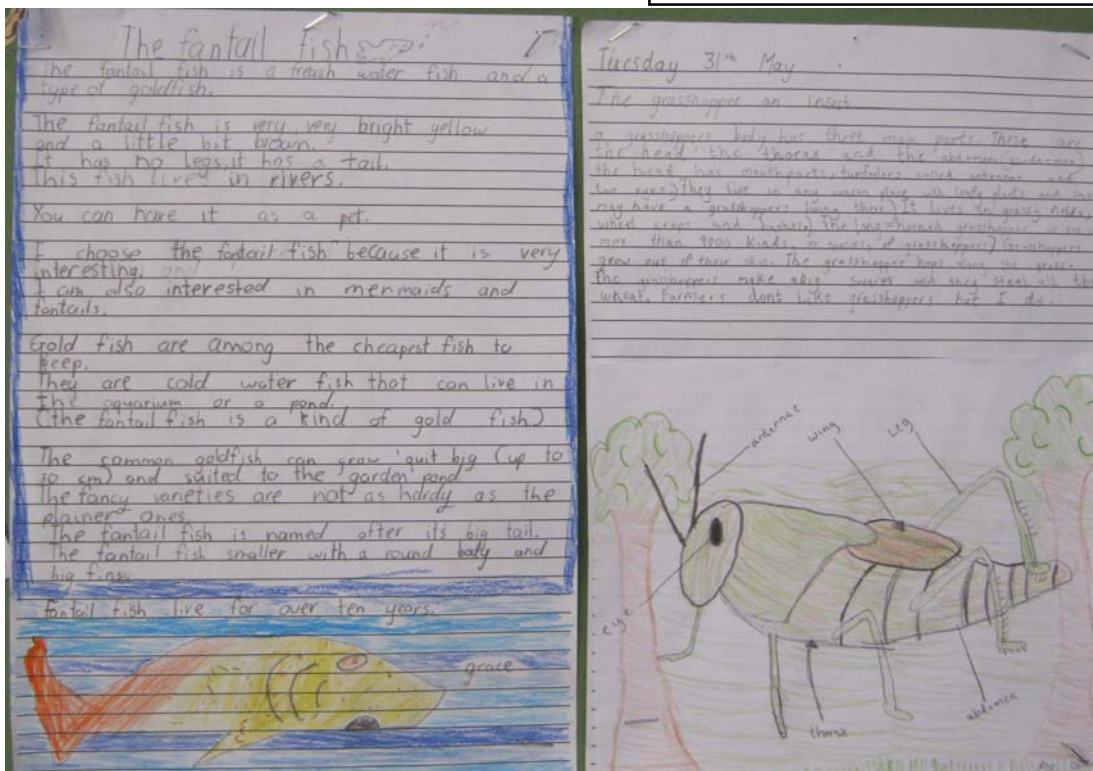 The fantail fish
The fantail fish is a freash water fish and a
type of goldfish.
The fantail fish is very very bright yellow
and a little bit brown.
It has no legs.it has a tail.
This fish lives in rivers.
You can have it as a pet.
I choose the fantail fish because it is very
interesting. and
I am also interested in mermaids and
fantails.
Gold fish are among the cheapest fish to
keep.
They are cold water fish that can live in
the aquarium or a pond.
(the fantail fish is a kind of gold fish)
The common goldfish can grow quit big (up to
30 cm) and suited to the garden pond
The fancy varieties are not as hardy as the
plainer ones.
The fantail fish is named after its big tail.
The fantail fish smaller with a round body and
big fins.
fantail fish live for over ten years.
grace
Tuesday 31th May
The grasshopper an insect
a grasshoppers body has three main parts. These are
the head the thorax and the abdomen
the head has mouthparts, called antennae and
two eyes) They live in any warm place with leafy plants and
may have a grasshoppers living there) It lives in grassy fields,
wheat crops and bushes) The long-horned grasshopper
more than 9000 kinds, or species of grasshoppers) Grasshoppers
grow out of their skin. The grasshopper hops along the grass.
the grasshoppers make abig swarm and they steal all the
wheat. Farmers dont like grasshoppers but I do.
antennae
wing
Leg
eye
thorax
abdomen